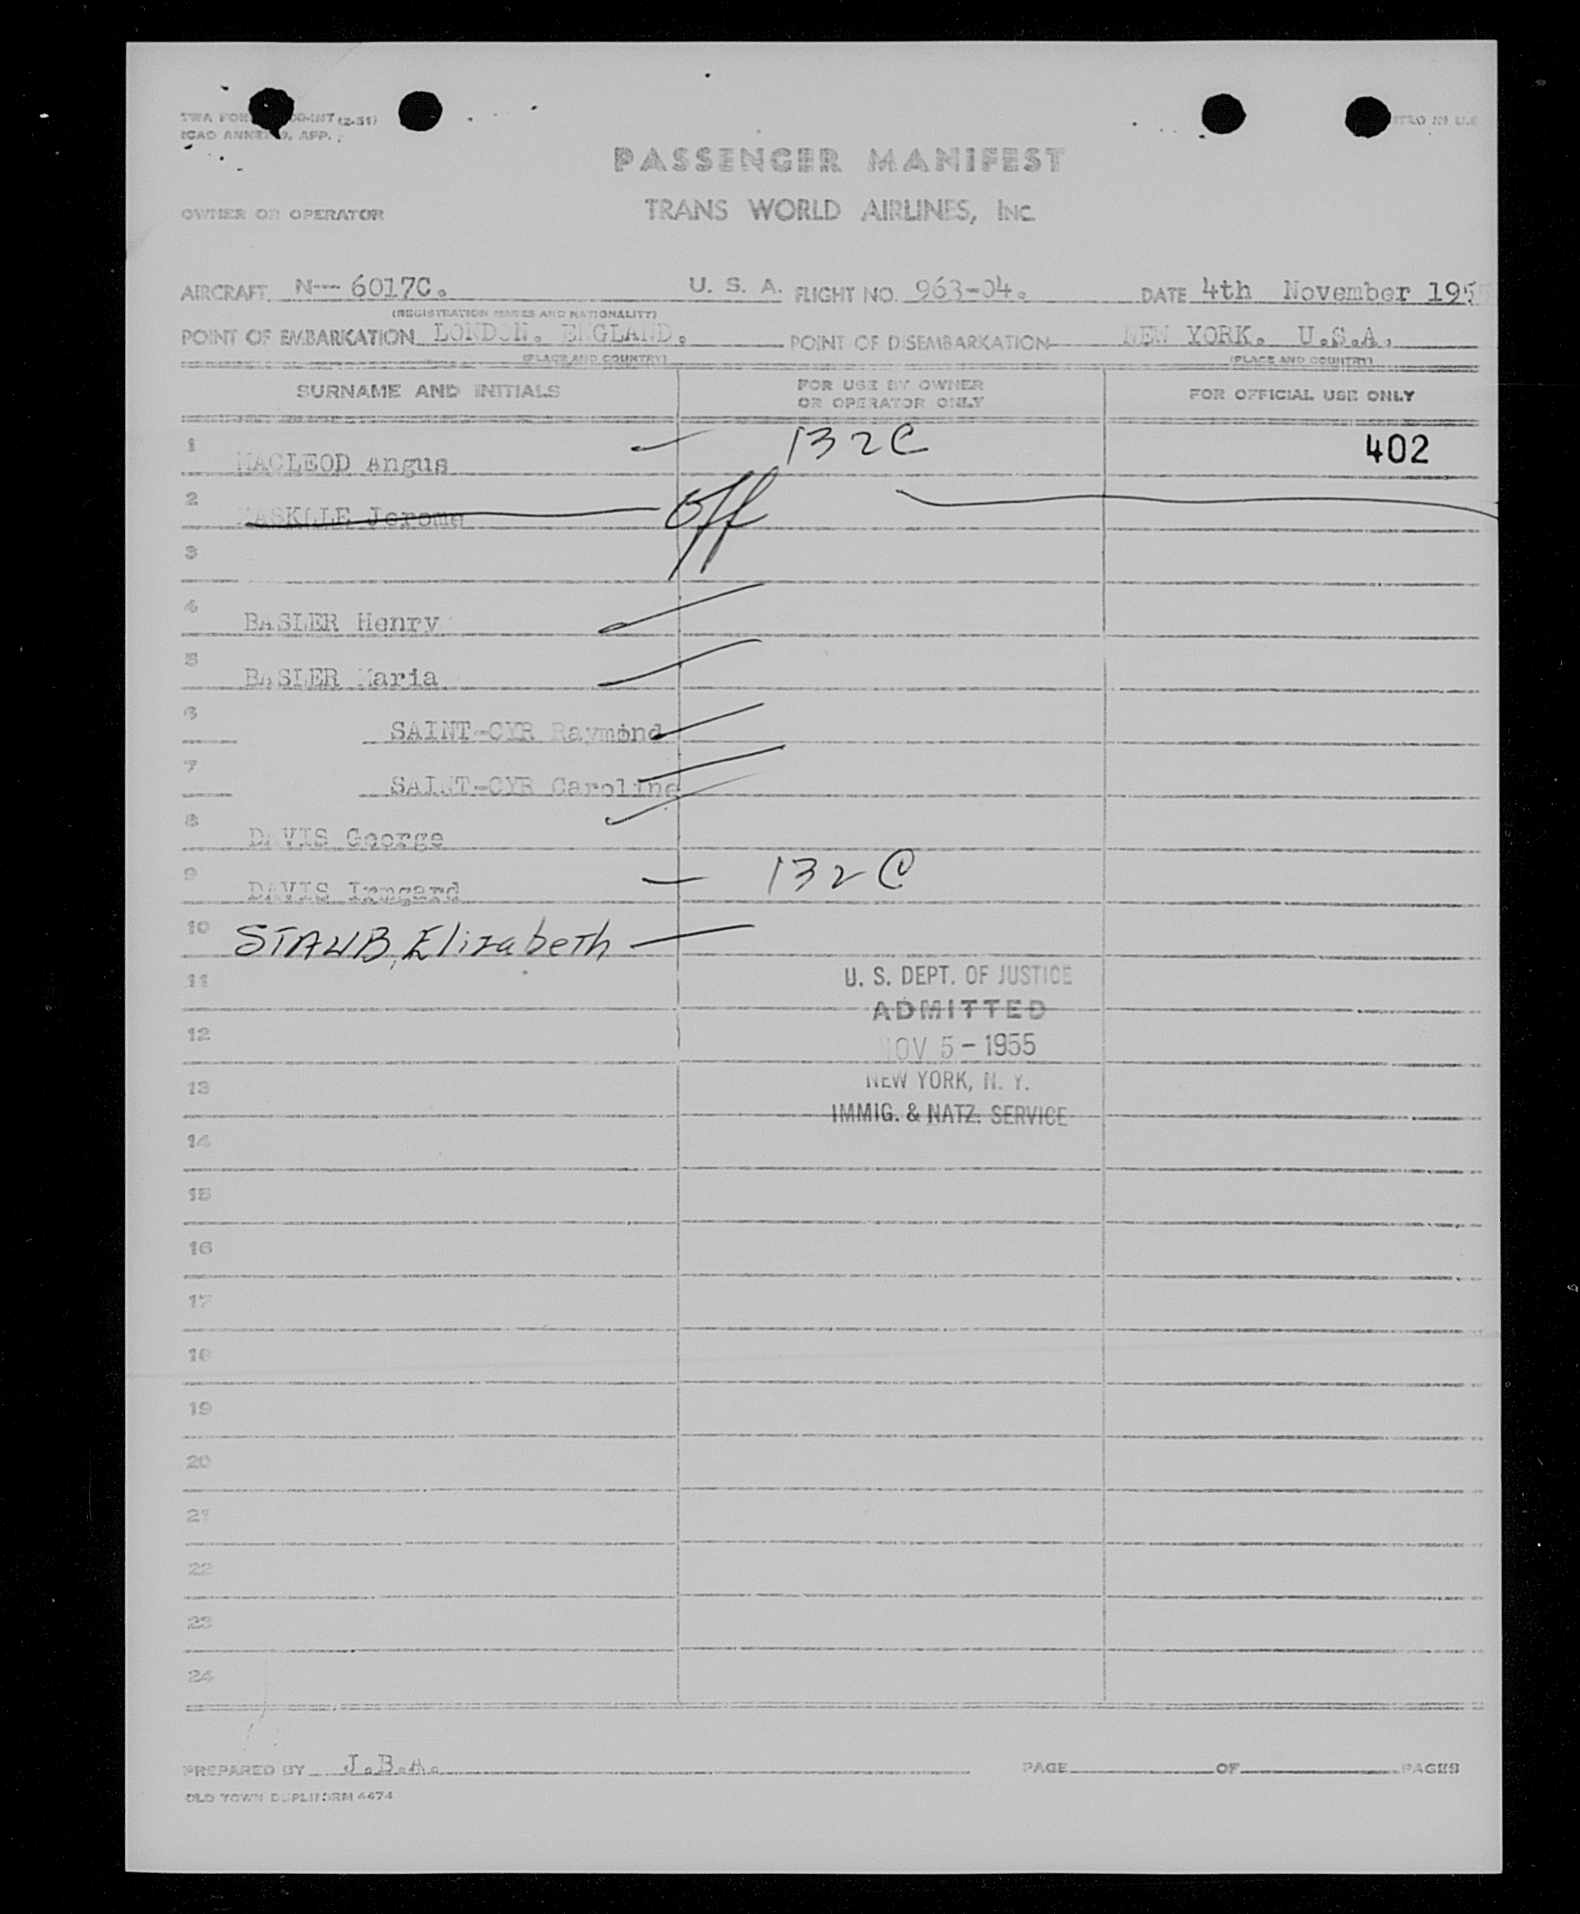 TWA FOR
(2-51)
ICAO ANNEX 9, APP.
U.S
PASSENGER MANIFEST
OWNER OR OPERATOR TRANS WORLD AIRLINES, INC.
AIRCRAFT N--- 6017C. U. S. A. FLIGHT NO. 963-04. DATE 4th November 195
(REGISTRATION MARKS AND NATIONALITY)
POINT OF EMBARKATION LONDON. ENGLAND. POINT OF DISEMBARKATION NEW YORK. U.S.A.
(PLACE AND COUNTRY) (PLACE AND COUNTRY)
SURNAME AND INITIALS FOR USE BY OWNER OR OPERATOR ONLY FOR OFFICIAL USE ONLY
1 MACLEOD Angus 132C 402
2 Jerome Off
3
4 BASLER Henry
5 BASLER Maria
6 SAINT-CYR Raymond
7 SAINT-CYR Caroline
8 DAVIS George
9 DAVIS Irmgard 132C
10 STAUB, Elizabeth
11 U. S. DEPT. OF JUSTICE
ADMITTED
12 NOV 5 - 1955
13 NEW YORK, N. Y.
IMMIG. & NATZ. SERVICE
14
15
16
17
18
19
20
21
22
23
24
PREPARED BY J.B.A. PAGE OF PAGES
OLD TOWN DUPLIFORM 4474